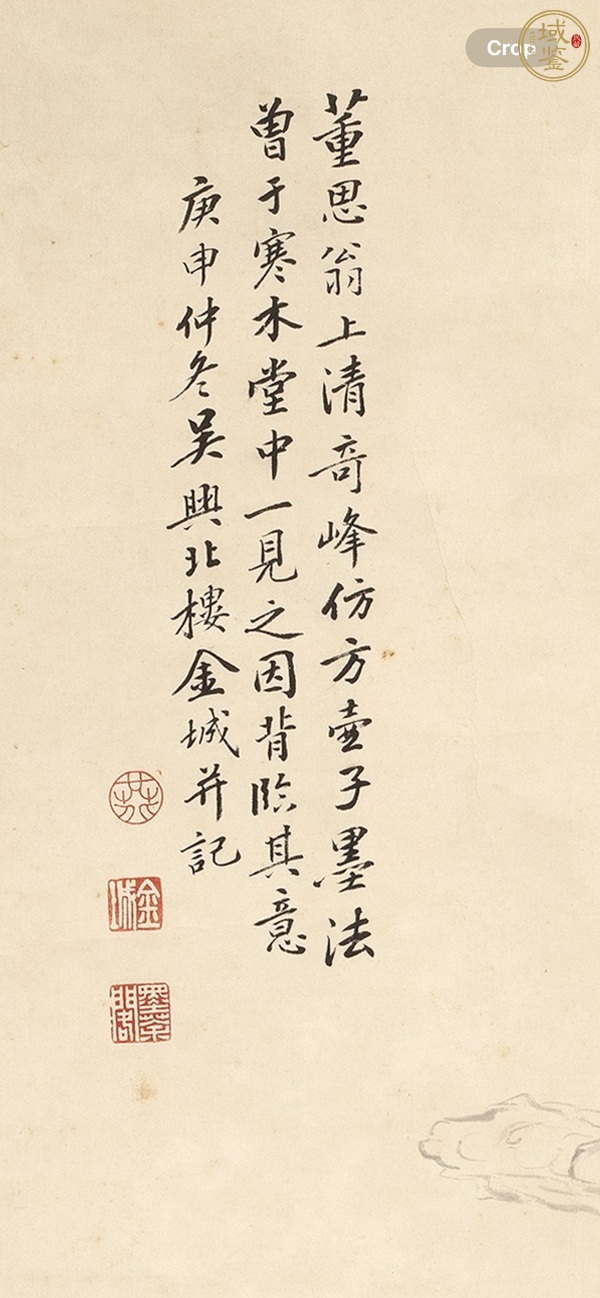 董思翁上清奇峰仿方壶子墨法
曾于寒木堂中一見之因背臨其意
庚申仲冬吴興北樓金城并記
金城
Crop
域鉴